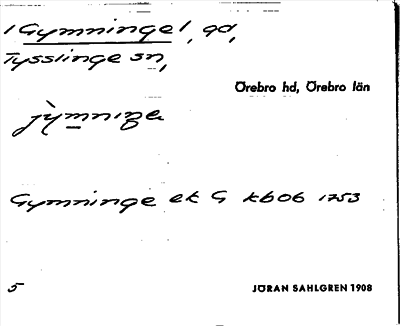 1 Gymninge 1, gd,
Tysslinge sn,
Örebro hd, Örebro län
Gymninge ek G kbob 1753
5
JÖRAN SAHLGREN 1908